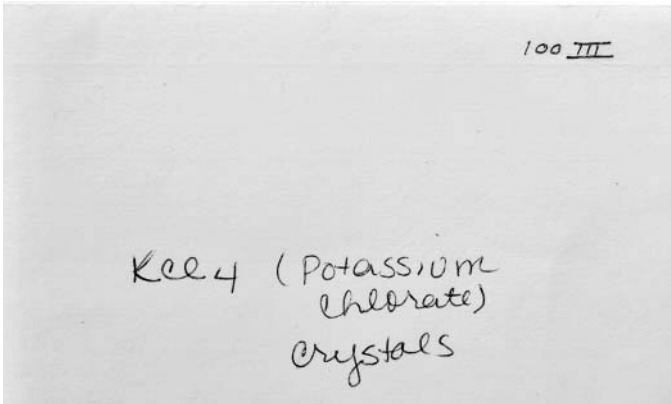 100 III
KCl4 (Potassium
Chlorate)
Crystals